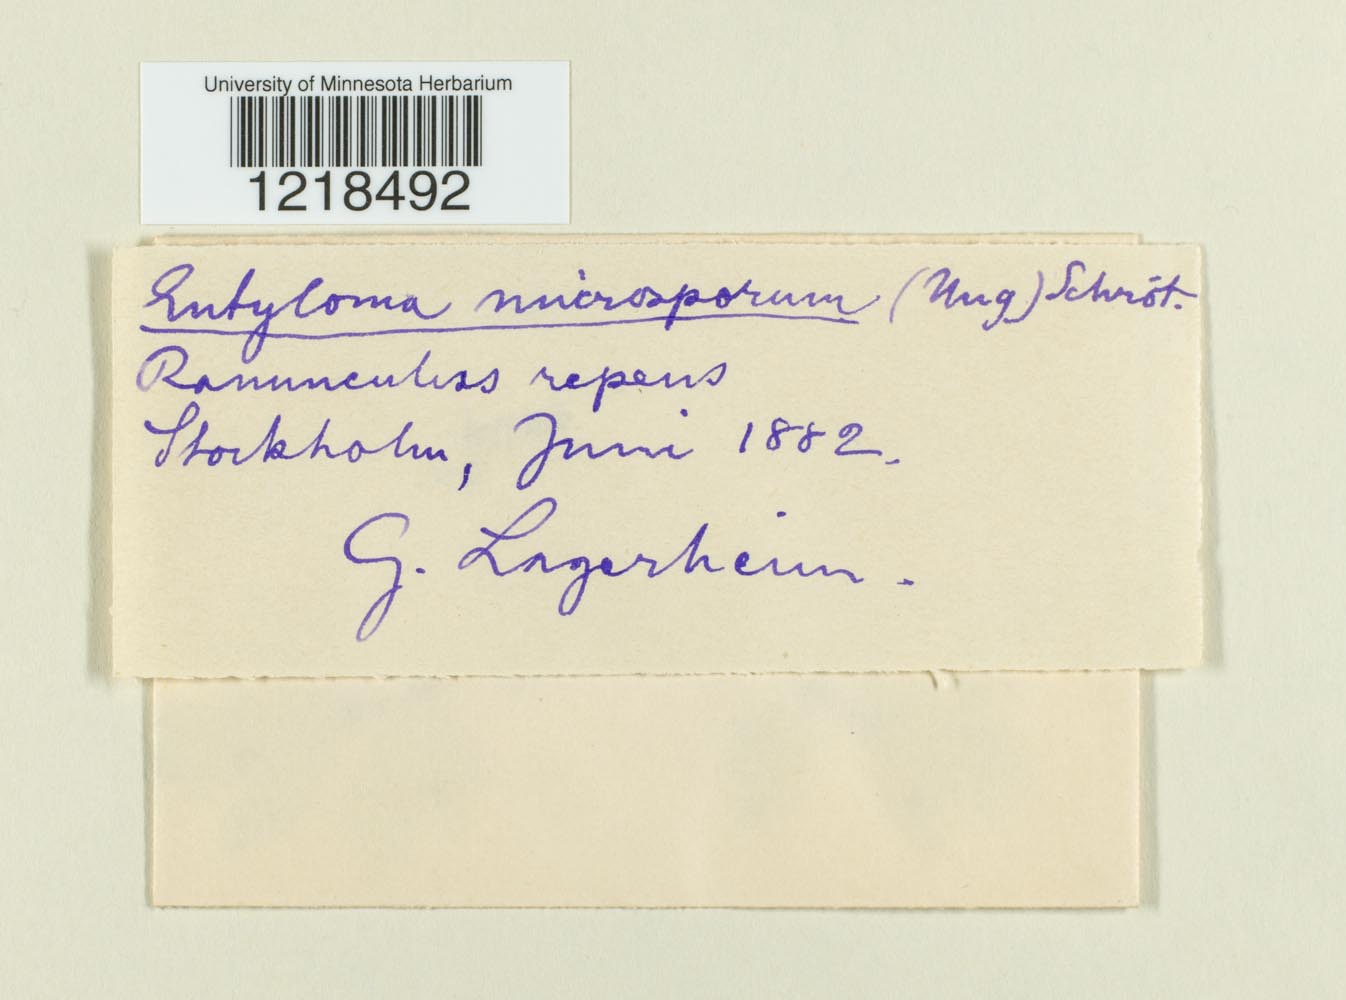 University of Minnesota Herbarium
1218492
Entyloma microsporum (Ung) Schröt.
Ranunculus repens
Stockholm, Juni 1882.
G. Lagerheim.